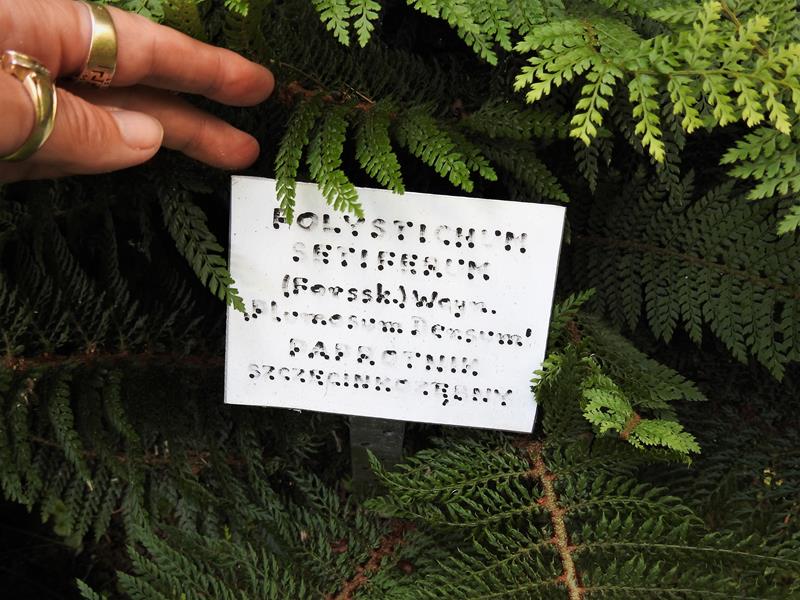 POLYSTICHUM
SETIFERUM
(Forssk.) Woyn.
'Plumosum Densum'
PAPROTNIK
SZCZECINKOZĘBNY